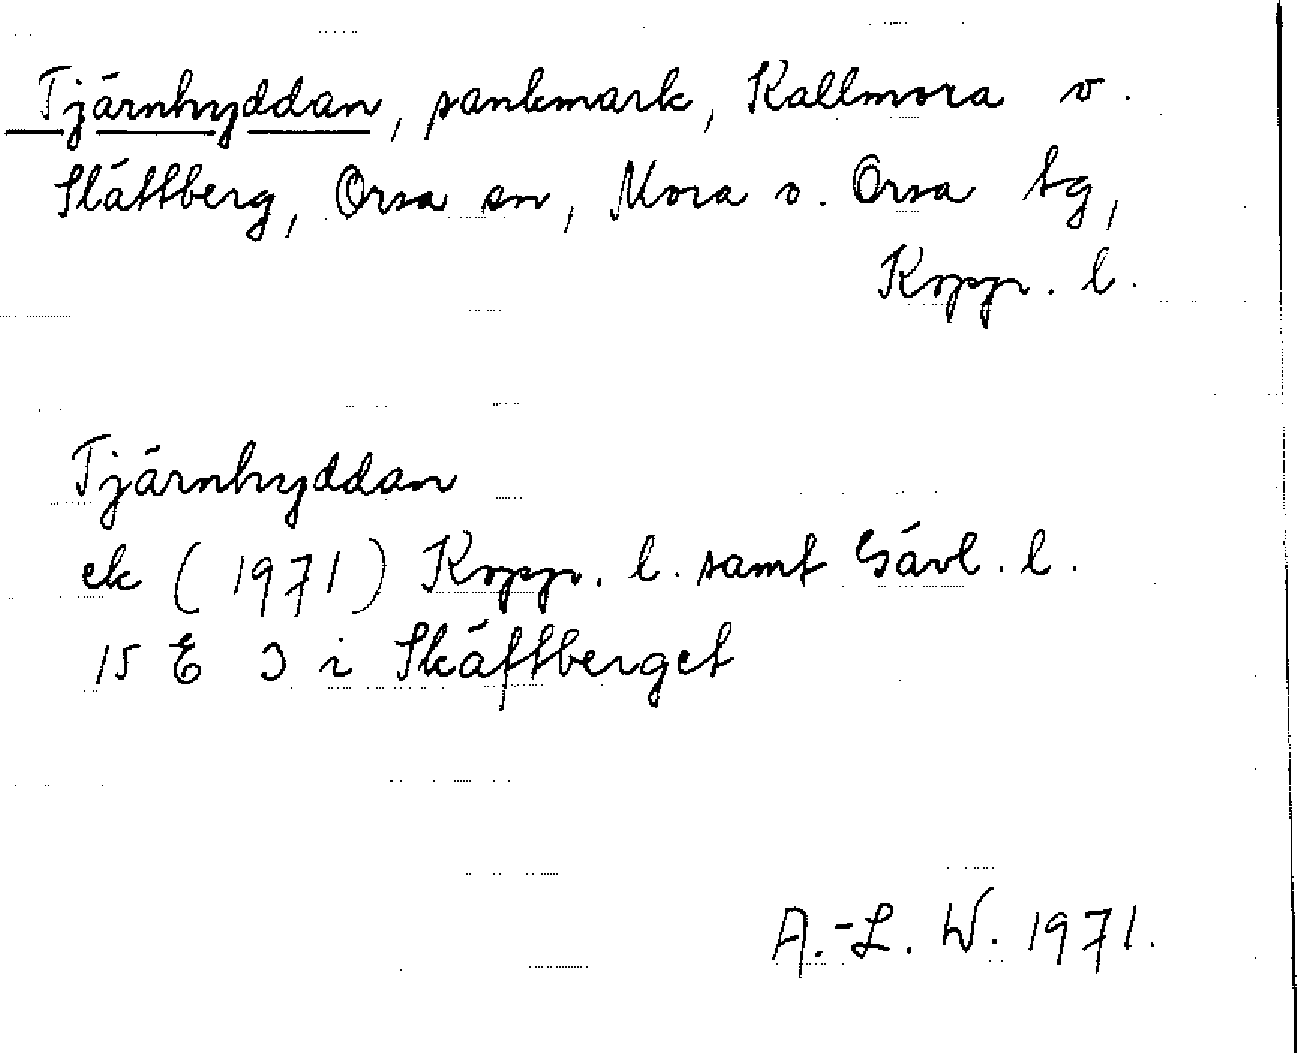 Tjärnhyddan, sankmark, Kallmora o.
Slättberg, Orsa sn, Mora o. Orsa tg,
Kopp. l.
Tjärnhyddan
ek (1971) Kopp. l. samt Gävl. l.
15 E 3 i Skåftberget
A.-L. W. 1971.